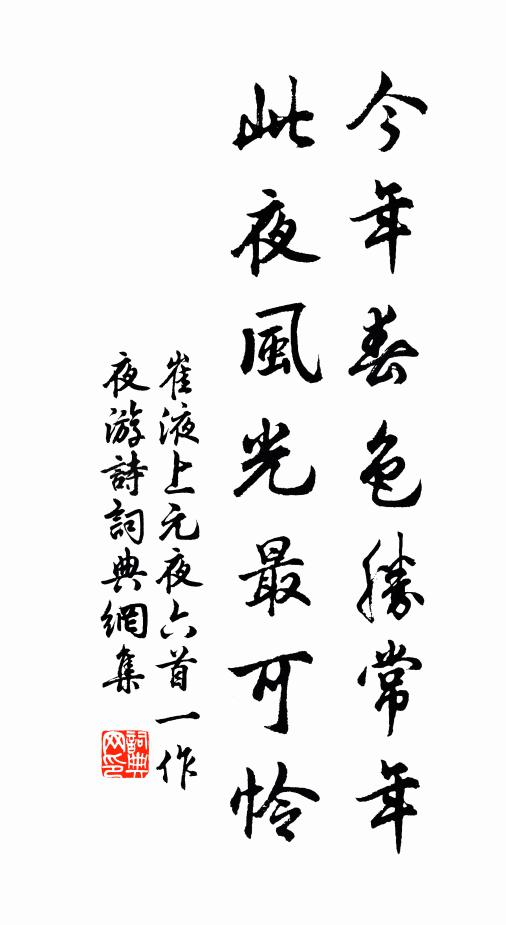 今年春色勝常年
此夜風光最可怜
崔液上元夜六首一作
夜游詩詞典網集
詞典网印